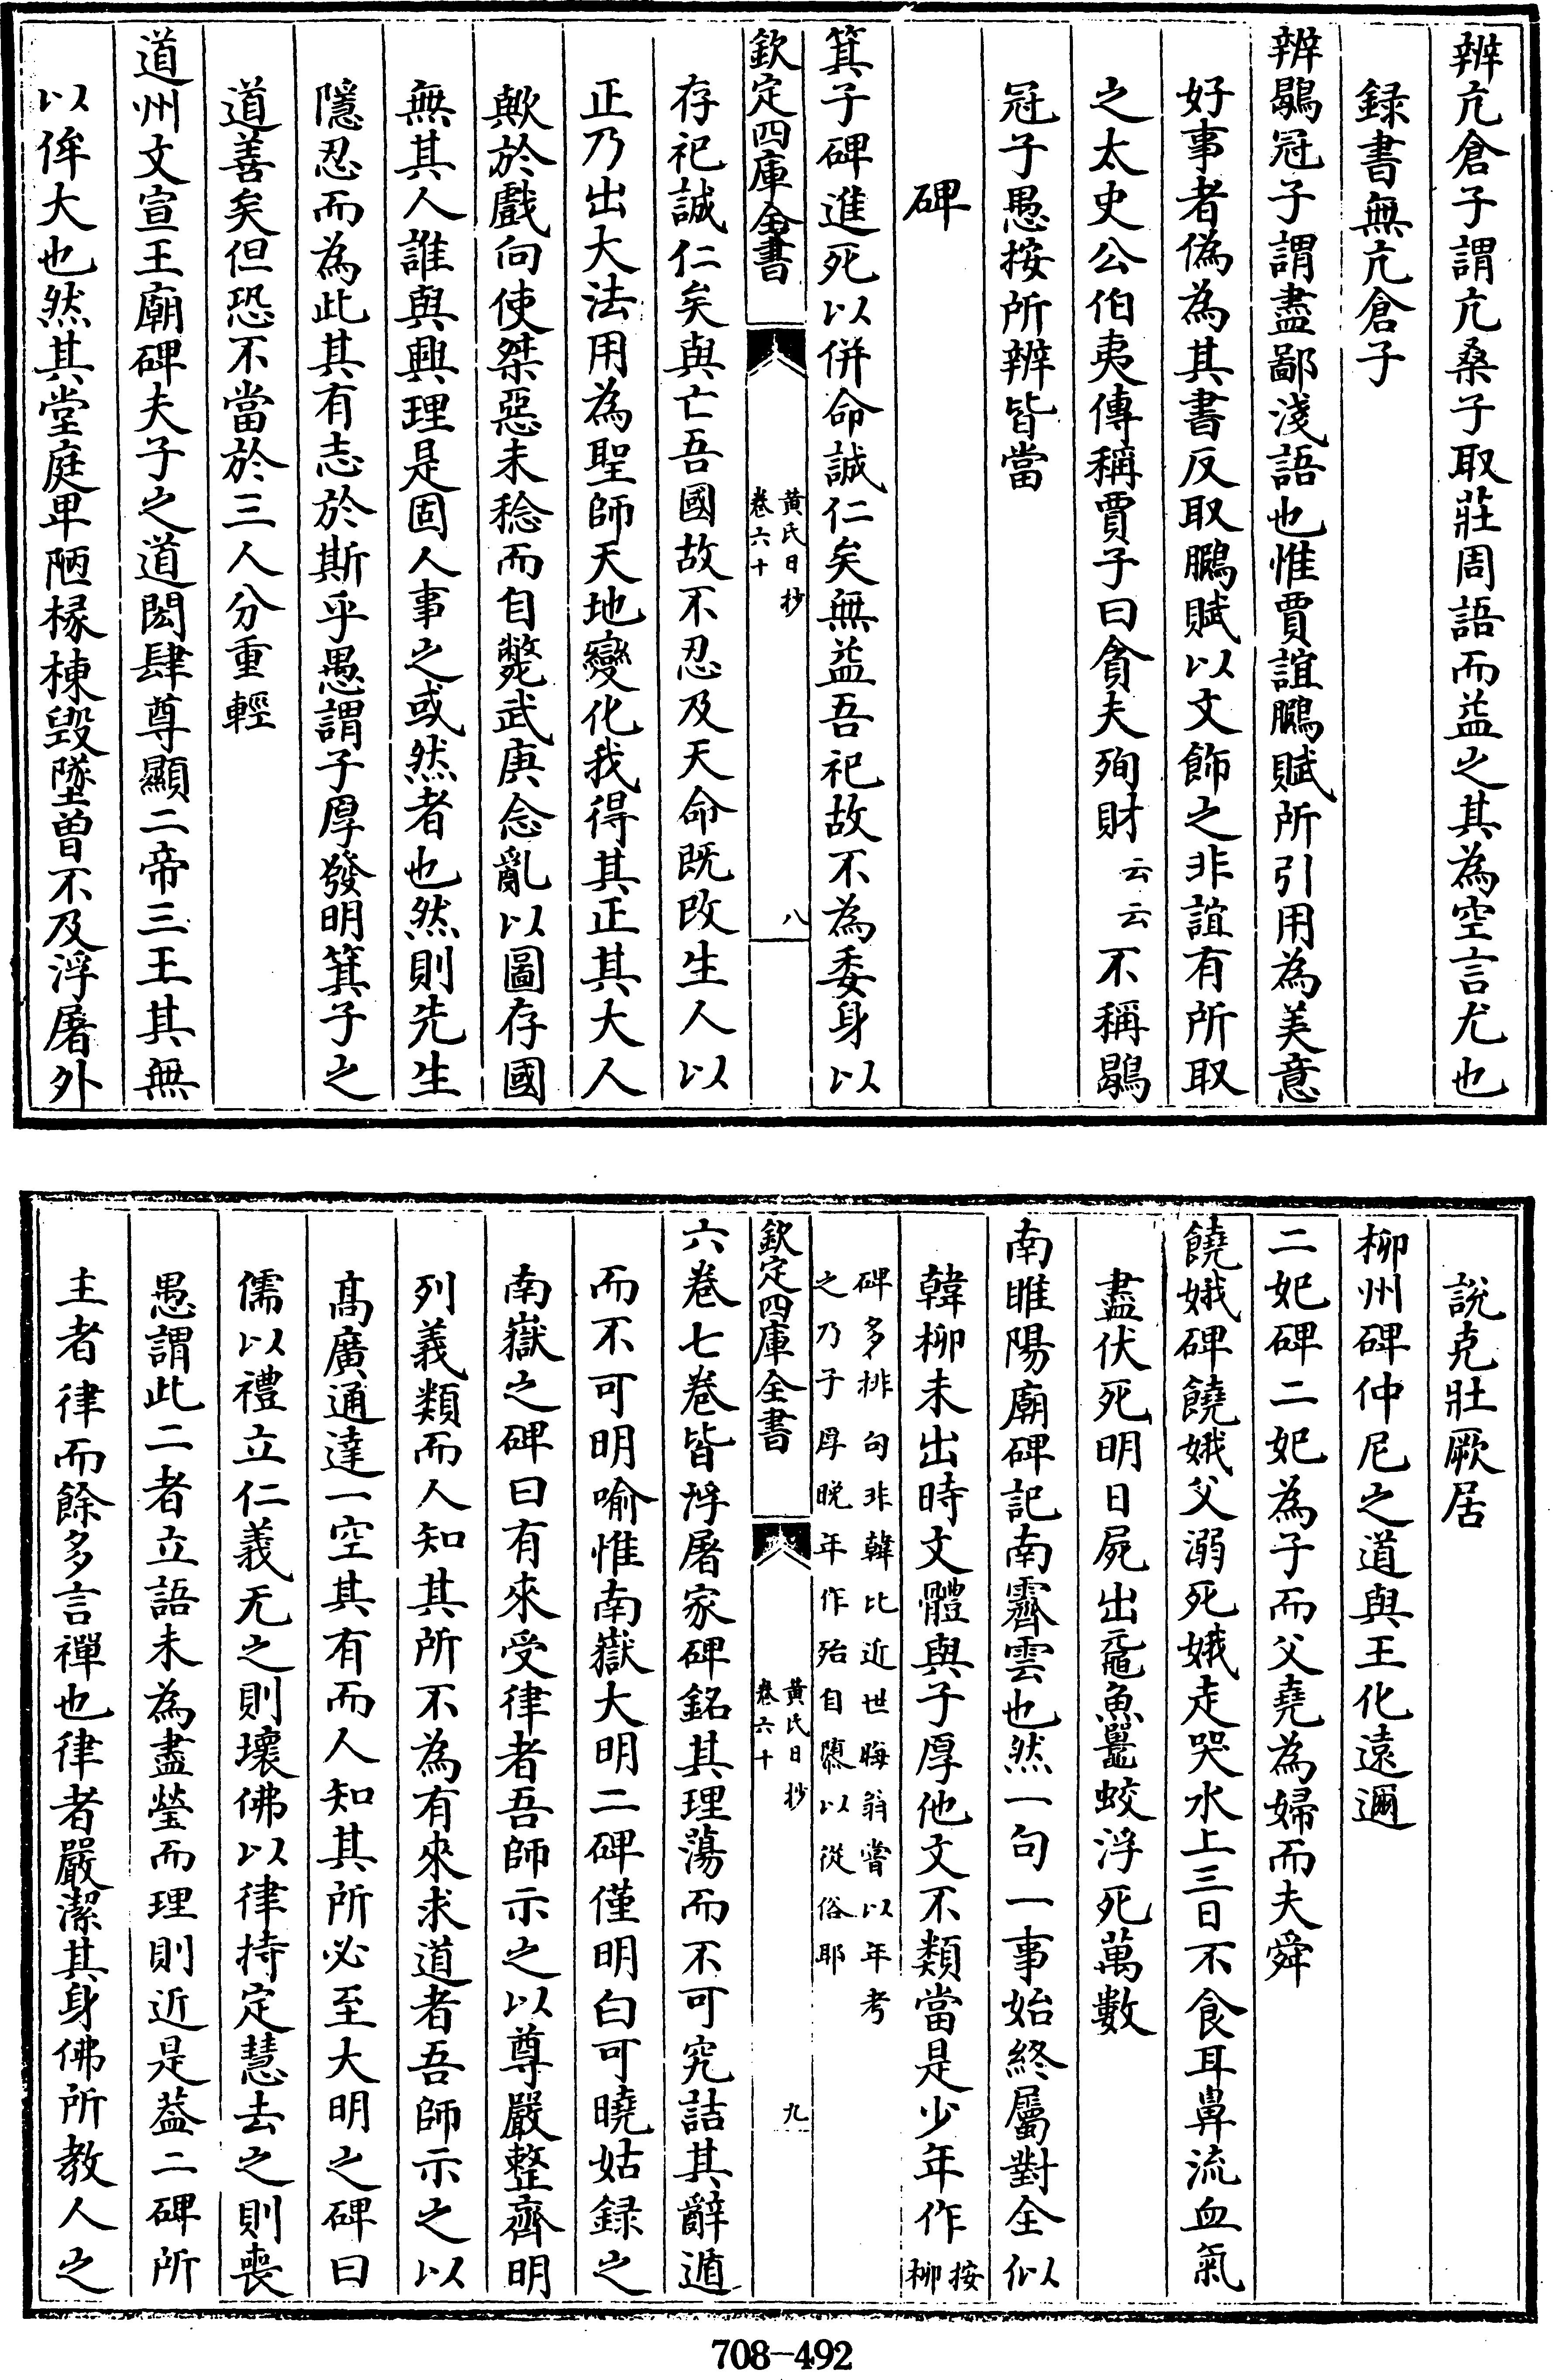 辨亢倉子謂亢桑子取莊周語而益之其為空言尤也
録書無亢倉子
辨鶡冠子謂盡鄙淺語也惟賈誼鵩賦所引用為美意
好事者偽為其書反取鵩賦以文飾之非誼有所取
之太史公伯夷傳稱賈子曰貪夫殉財云云不稱鶡
冠子愚按所辨皆當
碑
箕子碑進死以併命誠仁矣無益吾祀故不為委身以
欽定四庫全書
黄氏日抄
卷六十
八
存祀誠仁矣與亡吾國故不忍及天命既改生人以
正乃出大法用為聖師天地變化我得其正其大人
歟於戲向使桀惡未稔而自斃武庚念亂以圖存國
無其人誰與興理是固人事之或然者也然則先生
隱忍而為此其有志於斯乎愚謂子厚發明箕子之
道善矣但恐不當於三人分重輕
道州文宣王廟碑夫子之道閎肆尊顯二帝三王其無
以侔大也然其堂庭卑陋椽棟毀墜曽不及浮屠外
說克壯厥居
柳州碑仲尼之道與王化遠邇
二妃碑二妃為子而父堯為婦而夫舜
饒娥碑饒娥父溺死娥走哭水上三日不食耳鼻流血氣
盡伏死明日屍出黿魚鼉蛟浮死萬數
南睢陽廟碑記南霽雲也然一句一事始終屬對全似
韓柳未出時文體與子厚他文不類當是少年作按柳
碑多排句非韓比近世晦翁嘗以年考
之乃子厚晚年作殆自隳以從俗耶
欽定四庫全書
黄氏日抄
卷六十
九
六卷七卷皆浮屠家碑銘其理蕩而不可究詰其辭遁
而不可明喻惟南嶽大明二碑僅明白可曉姑録之
南嶽之碑曰有來受律者吾師示之以尊嚴整齊明
列義類而人知其所不為有來求道者吾師示之以
髙廣通達一空其有而人知其所必至大明之碑曰
儒以禮立仁義无之則壞佛以律持定慧去之則喪
愚謂此二者立語未為盡瑩而理則近是葢二碑所
主者律而餘多言禪也律者嚴潔其身佛所教人之
708-492